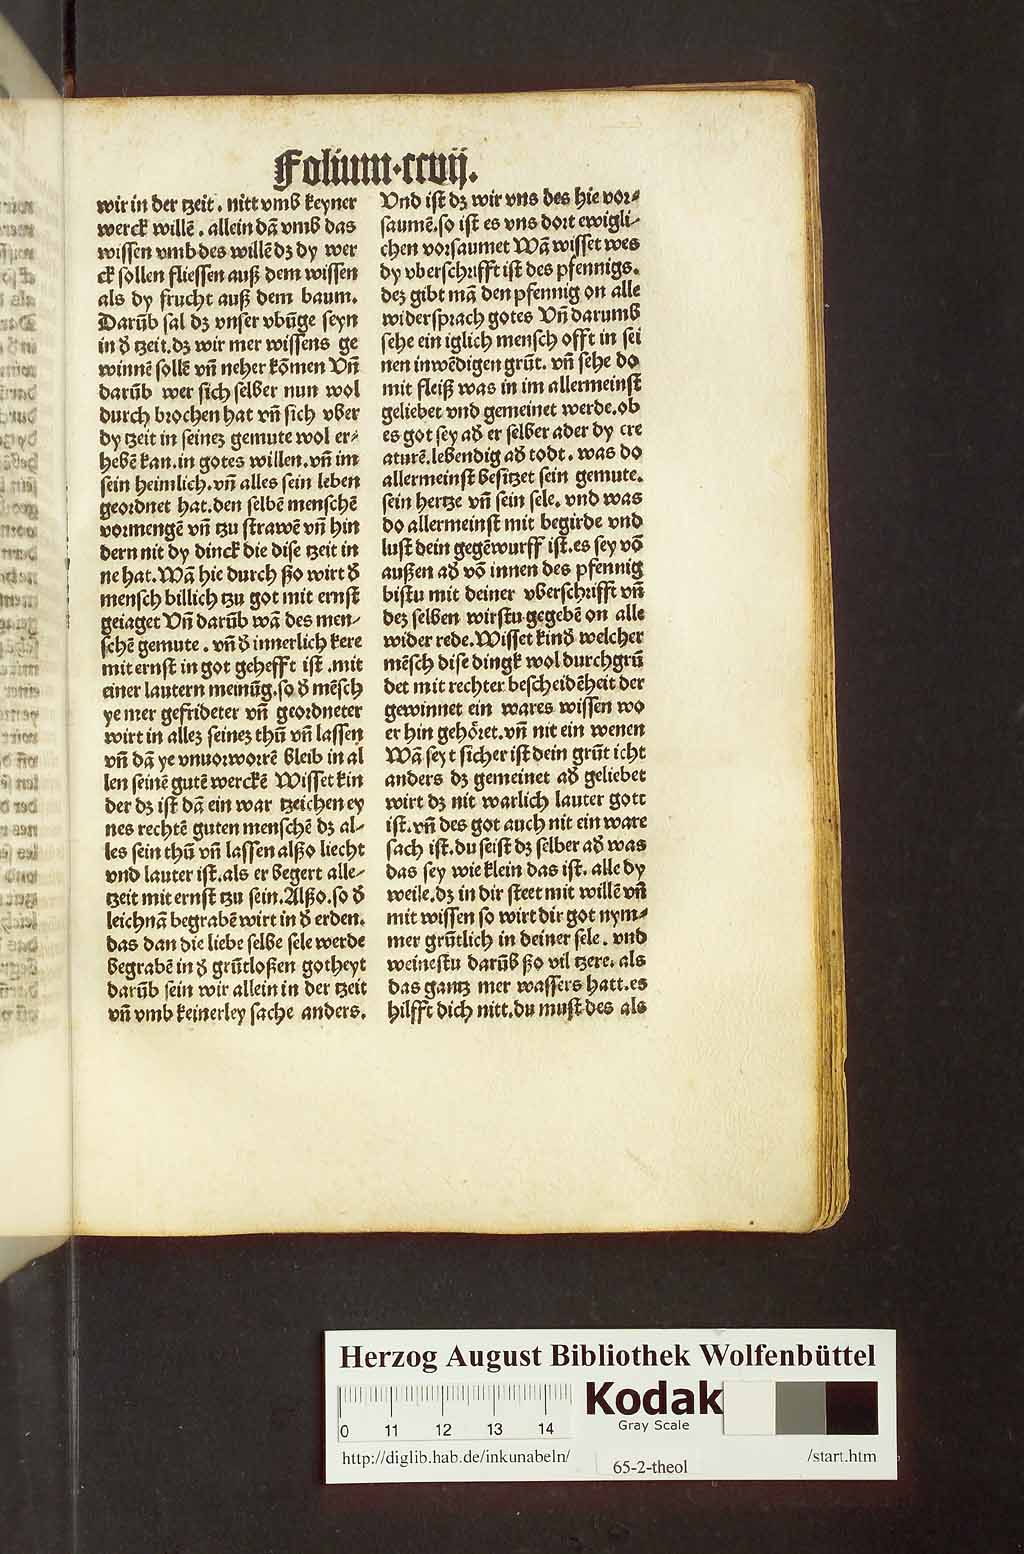 Folium·ccvij.
wir in der tzeit. nitt vmb keyner
werck willē. allein dā vmb das
wissen vmb des willē dz dy wer
ck sollen fliessen auß dem wissen
als dy frucht auß dem baum.
Darūb sal dz vnser vbūge seyn
in ď tzeit. dz wir mer wissens ge
winnē sollē vn̄ neher kōmen Vn̄
darūb wer sich selber nun wol
durch brochen hat vn̄ sich vber
dy tzeit in seinez gemute wol er⸗
hebē kan. in gotes willen. vn̄ im
sein heimlich. vn̄ alles sein leben
geordnet hat. den selbē menschē
vormengē vn̄ tzu strawē vn̄ hin
dern nit dy dinck die dise tzeit in
ne hat. Wā hie durch ßo wirt ď
mensch billich tzu got mit ernst
geiaget Vn̄ darūb wā des men⸗
schē gemute. vn̄ ď innerlich kere
mit ernst in got gehefft ist. mit
einer lautern meinūg. so ď mēsch
ye mer gefrideter vn̄ geordneter
wirt in allez seinez thū vn̄ lassen
vn̄ dā ye vnuorworrē bleib in al
len seinē gutē werckē Wisset kin
der dz ist dā ein war tzeichen ey
nes rechtē guten menschē dz al⸗
les sein thū vn̄ lassen alßo liecht
vnd lauter ist. als er begert alle⸗
tzeit mit ernst tzu sein. Alßo. so ď
leichnā begrabē wirt in ď erden.
das dan die liebe selbe sele werde
begrabē in ď grūtloßen gotheyt
darūb sein wir allein in der tzeit
vn̄ vmb keinerley sache anders.
Vnd ist dz wir vns des hie vor⸗
saumē. so ist es vns dort ewigli⸗
chen vorsaumet Wā wisset wes
dy vberschrifft ist des pfennigs.
dez gibt mā den pfennig on alle
widersprach gotes Vn̄ darumb
sehe ein iglich mensch offt in sei
nen inwēdigen grūt. vn̄ sehe do
mit fleiß was in im allermeinst
geliebet vnd gemeinet werde. ob
es got sey aď er selber ader dy cre
aturē. lebendig aď todt. was do
allermeinst besitzet sein gemute.
sein hertze vn̄ sein sele. vnd was
do allermeinst mit begirde vnd
lust dein gegēwurff ist. es sey vō
außen aď vō innen des pfennig
bistu mit deiner vberschrifft vn̄
dez selben wirstu gegebē on alle
wider rede. Wisset kinď welcher
mēsch dise dingk wol durchgrū
det mit rechter bescheidēheit der
gewinnet ein wares wissen wo
er hin gehöret. vn̄ nit ein wenen
Wā seyt sicher ist dein grūt icht
anders dz gemeinet aď geliebet
wirt dz nit warlich lauter gott
ist. vn̄ des got auch nit ein ware
sach ist. du seist dz selber aď was
das sey wie klein das ist. alle dy
weile. dz in dir steet mit willē vn̄
mit wissen so wirt dir got nym⸗
mer grūtlich in deiner sele. vnd
weinestu darūb ßo vil tzere. als
das gantz mer wassers hatt. es
hilfft dich nitt. du must des als
Herzog August Bibliothek Wolfenbüttel
Kodak
Gray Scale
0 11 12 13 14
http://diglib.hab.de/inkunabeln/
65-2-theol
/start.htm